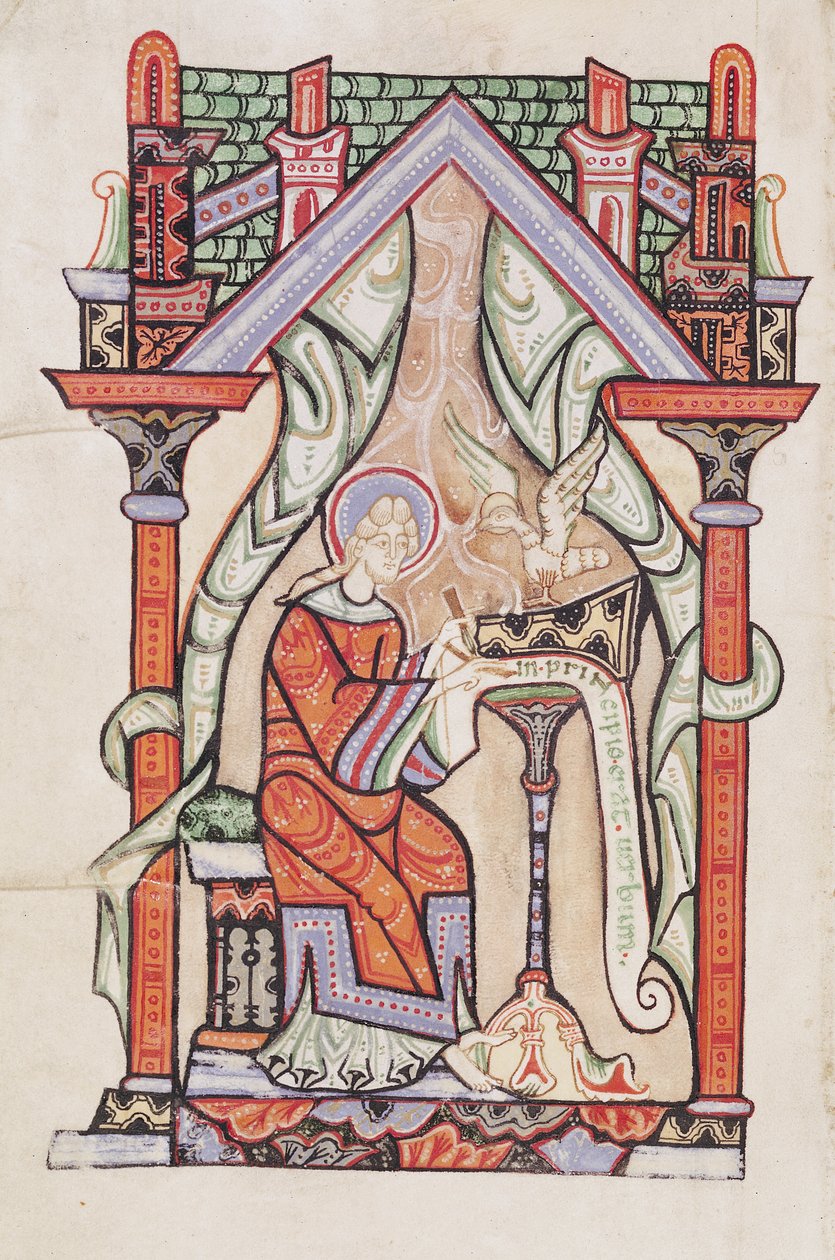 in·principio·erat·uerbum·